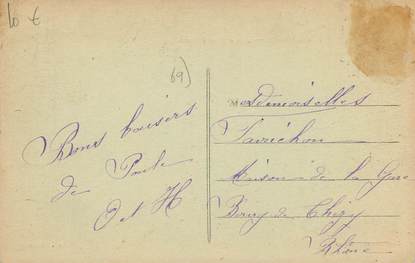 10 €
69)
Bons baisers
de Paule
O et H
Mesdemoiselles
Favrichon
Maison de la Gare
Bourg de Thizy
Rhône